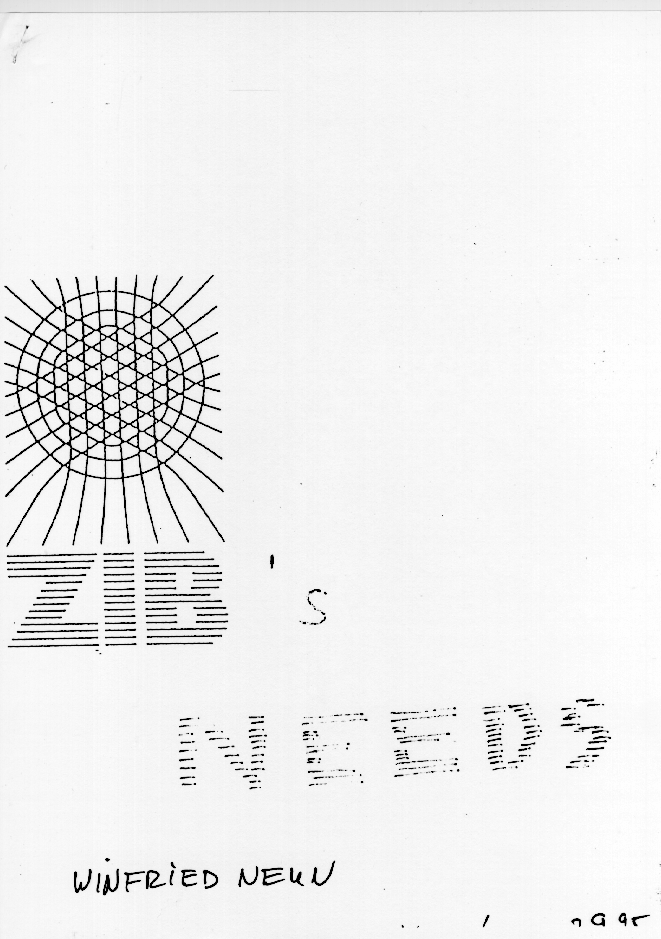 ZIB's
NEEDS
WiNFRiED NEUN